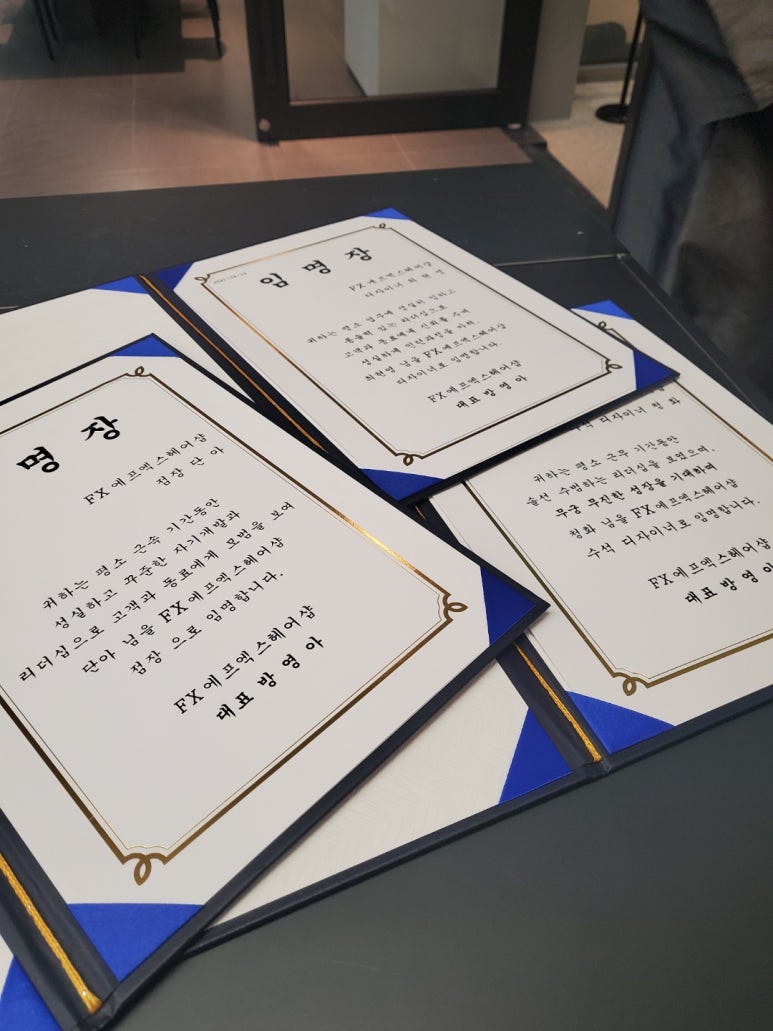 임명장
FX에프엑스헤어샵
디자이너 최 현 영
귀하는 평소 업무에 성실히 임하고
통솔력 있는 리더십으로
고객과 동료에게 신뢰를 주며
성실하게 인턴과정을 마쳐.
최현영 님을 FX에프엑스헤어샵
디자이너로 임명합니다.
FX에프엑스헤어샵
대표 방 영 아
명 장
FX에프엑스헤어샵
점장 단 아
귀하는 평소 근속 기간동안
성실하고 꾸준한 자기개발과
리더십으로 고객과 동료에게 모범을 보여
단아 님을 FX에프엑스헤어샵
점장 으로 임명합니다.
FX에프엑스헤어샵
대표 방 영 아
수석 디자이너 청 화
귀하는 평소 근무 기간동안
솔선 수범하는 리더십을 보였으며.
무궁 무진한 성장을 기대하며
청화 님을 FX에프엑스헤어샵
수석 디자이너로 임명합니다.
FX에프엑스헤어샵
대표 방 영 아